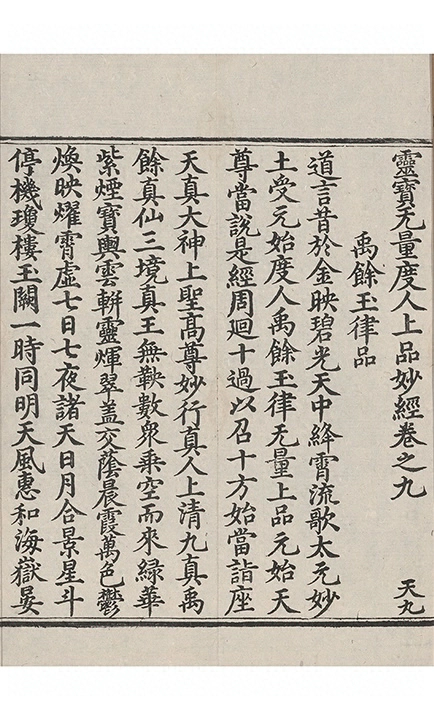 靈寶无量度人上品妙經卷之九
天九
禹餘玉律品
道言昔於金映碧光天中絳霄流歌太元妙
土受元始度人禹餘玉律无量上品元始天
尊當說是經周廻十過以召十方始當詣座
天真大神上聖髙尊妙行真人上清九真禹
餘真仙三境真王無鞅數衆乘空而來緑華
紫煙寶輿雲軿靈煇翠盖交蔭晨霞萬色鬱
煥映燿霄虛七日七夜諸天日月合景星斗
停機瓊樓玉闕一時同明天風惠和海嶽晏